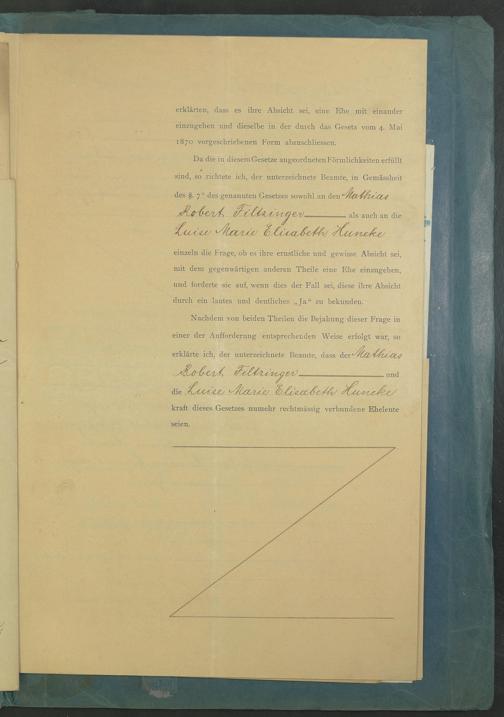 erklärten, dass es ihre Absicht sei, eine Ehe mit einander
einzugehen und dieselbe in der durch das Gesetz vom 4. Mai
1870 vorgeschriebenen Form abzuschliessen.
Da die in diesem Gesetze angeordneten Förmlichkeiten erfüllt
sind, so richtete ich, der unterzeichnete Beamte, in Gemässheit
des §. 7 des genannten Gesetzes sowohl an den Mathias
Robert Filtzinger als auch an die
Luise Marie Elisabeth Huneke
einzeln die Frage, ob es ihre ernstliche und gewisse Absicht sei,
mit dem gegenwärtigen anderen Theile eine Ehe einzugehen,
und forderte sie auf, wenn dies der Fall sei, diese ihre Absicht
durch ein lautes und deutliches „Ja“ zu bekunden.
Nachdem von beiden Theilen die Bejahung dieser Frage in
einer der Aufforderung entsprechenden Weise erfolgt war, so
erklärte ich, der unterzeichnete Beamte, dass der Mathias
Robert Filtzinger und
die Luise Marie Elisabeth Huneke
kraft dieses Gesetzes numehr rechtmässig verbundene Eheleute
seien.